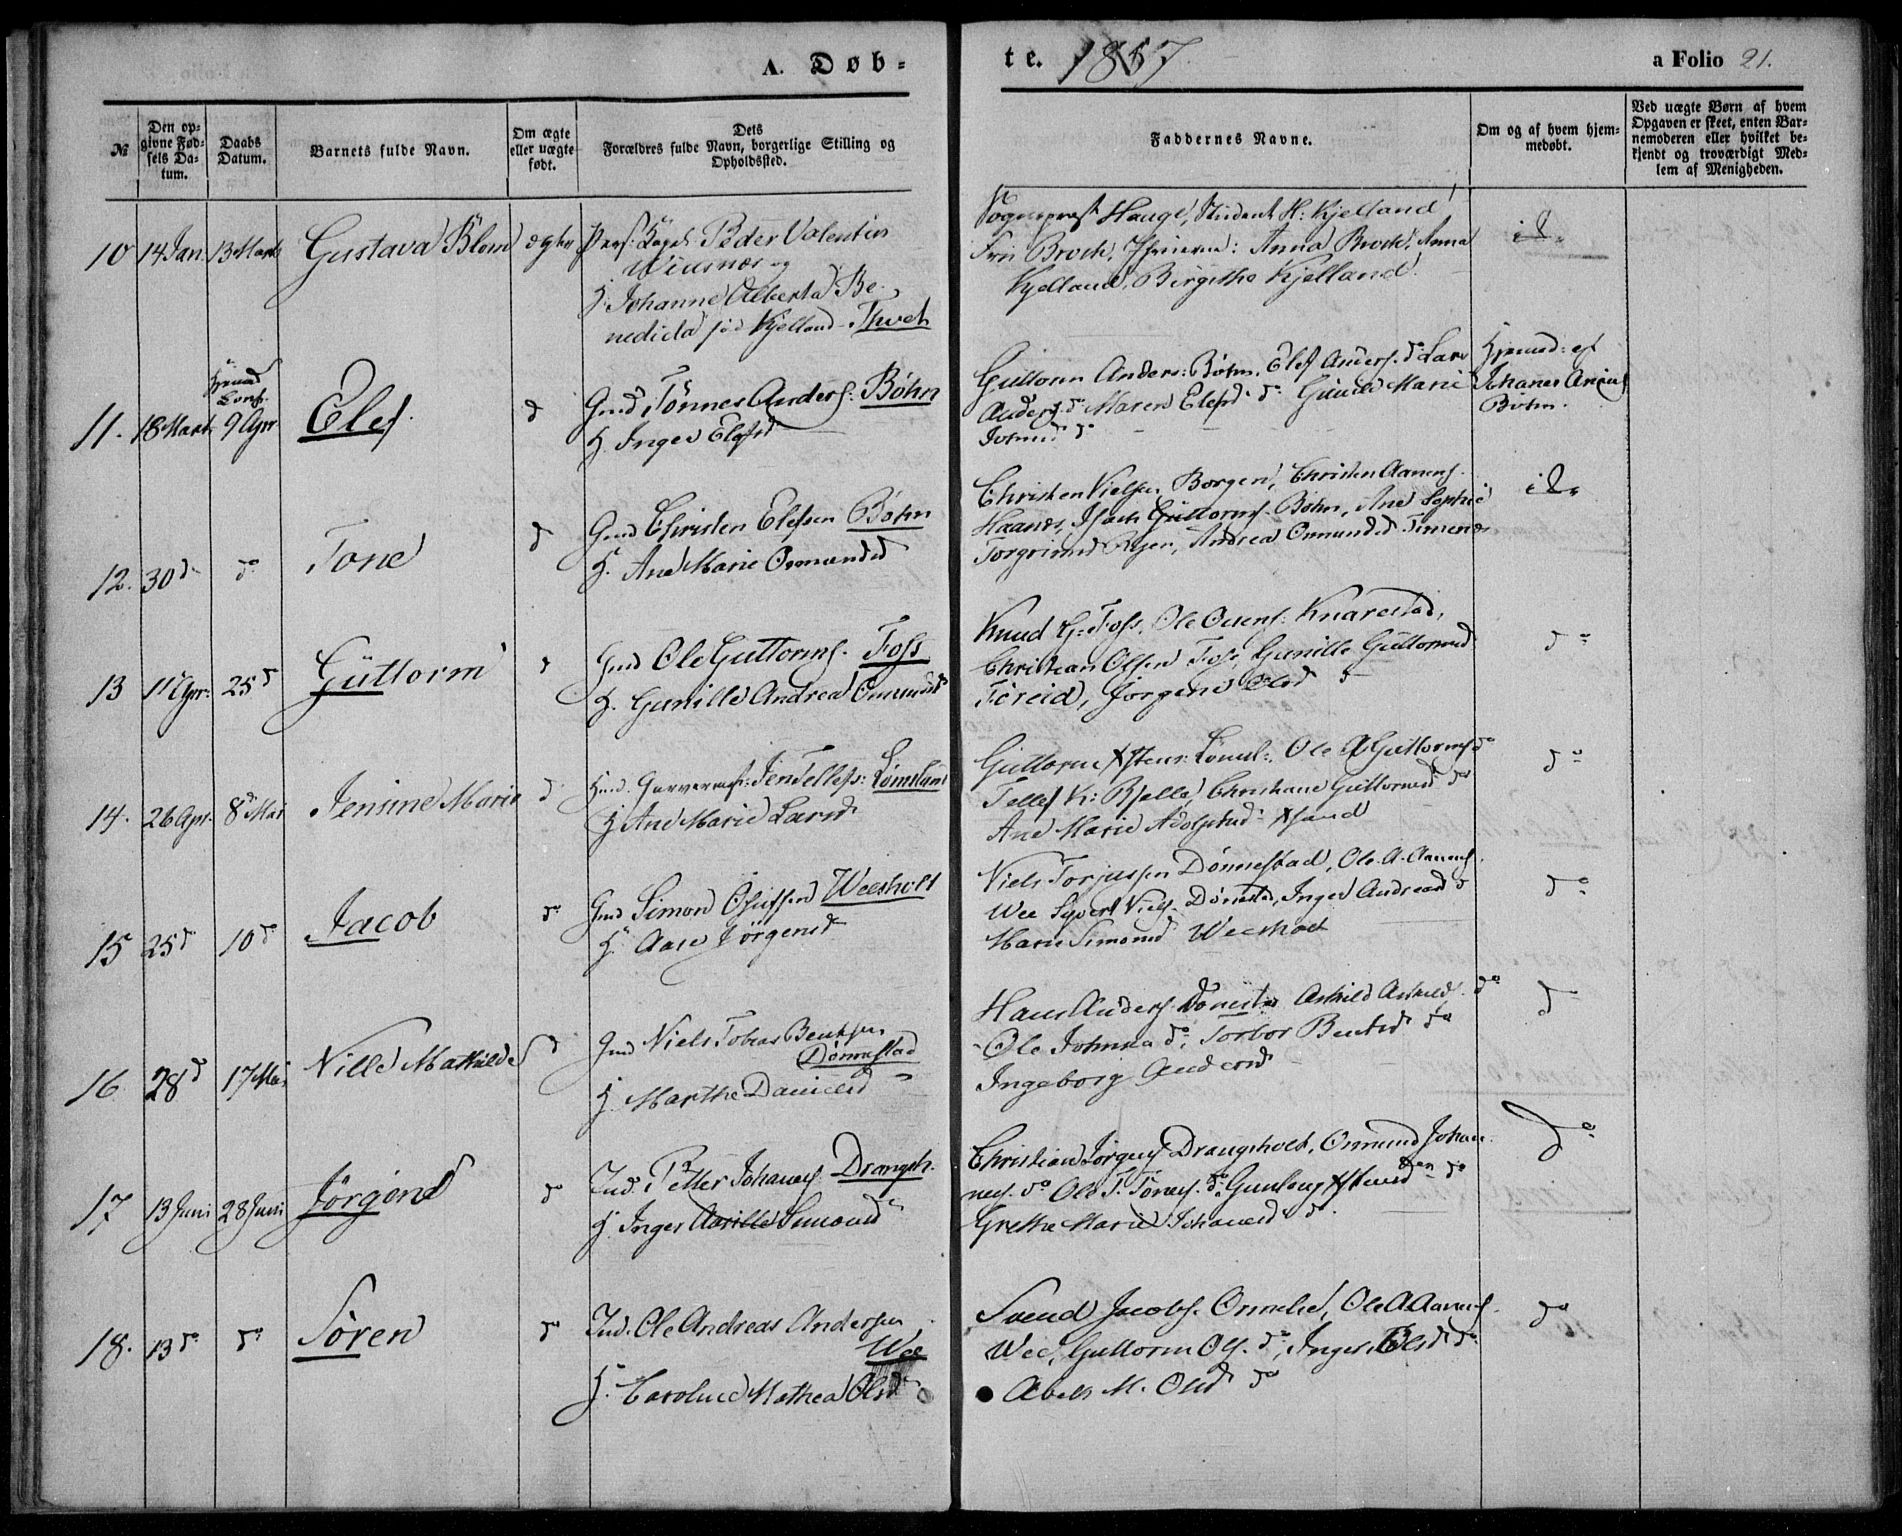 A. Døb-
te. 1857.
a Folio 21.
№
Den op-
givne Fød-
sels Da-
tum.
Daabs
Datum.
Barnets fulde Navn.
Om ægte
eller uægte
født.
Dets
Forældres fulde Navn, borgerlige Stilling og
Opholdssted.
Faddernes Navne.
Om og af hvem hjem-
medøbt.
Ved uægte Børn af hvem
Opgaven er skeet, enten Bar-
nemoderen eller hvilket be-
kjendt og troværdigt Med-
lem af Menigheden.
10 14 Jan. 13 Marts Gustava Blom ægte
Peder Valentin
H. Johanne Alberta Be-
nedicta fød Kjelland Thvet
Sognepræst Hauge, Student H: Kjelland
Anna Brock, Anna
Kjelland, Birgitha Kjelland
11. 18 Marts 9 Apr Elef d
Gmd Tønnes Anders: Bøhn
H. Inger Elefsd
Guttorm Anders: Bøhn, Elef Anders. do Lars
Anders. do Maren Elefsd do Gunild Marie
do
Hjemmed: af
Bøhn.
12. 30 d do Tone d
Gmd Christen Elefsen Bøhn
H. Ane Marie Osmundsd
Christen Nielsen Borgen, Christen Aanens.
Haanes, Isach Guttorms. Bøhn, Ane Sophie
Torgrimsd Ryen, Andrea Osmundsd Timenes
13 11 Apr: 25 d Guttorm d
Gmd Ole Guttorms. Foss
H. Gunille Andrea Osmundsd
Knud G: Foss, Ole Olsens: Knarestad,
Christian Olsen Foss, Gunille Guttormsd
Jørgine Olsd
do
14. 26 Apr. 8 d Mai Jensine Marie d
Jens Tellefs: Lømsland
H Ane Marie Larsd
Guttorm Lømsl: Ole A Guttorms do
Tellef K: Bjelle, Christiane Guttormsd do
Ane Marie Adolphsd
do
15 25 d 10 d Jacob do
Gmd Simon Olufsen Weesholt
H. Aase Jørgensd
Niels Torjussen Dønnestad, Ole A. Aanens.
Wee Syvert Niels. Dønnestad, Inger Andreasd
Marie Simonsd Weesholt
do
16 28 d 17 Mai Nille Mathilde d
Gmd Niels Tobias Bentsen
Dønnestad
H. Marthe Danielsd
Hans Anders. Dønnestad do
Ole Johnsen do, Torbor Bentsd do
Ingeborg Andersd
d
17 13 Juni 28 Juni Jørgine do
Ind. Petter Johanes. Drangsh.
H. Inger Simonsd
Christian Jørgens Drangsholt, Osmund Johan-
nes. do Ole T. Tønes. do, Gunlaug do
Grethe Marie Johanesd do.
do
18. 13 do do Søren do
Ind. Ole Andreas Andersen
Wee
H. Caroline Mathea Olsd
Svend Jacobs. Omelie, Ole A Aanens.
Wee, Guttorm Ols. do, Inger Elsd do
Abels M. Olsd do
do